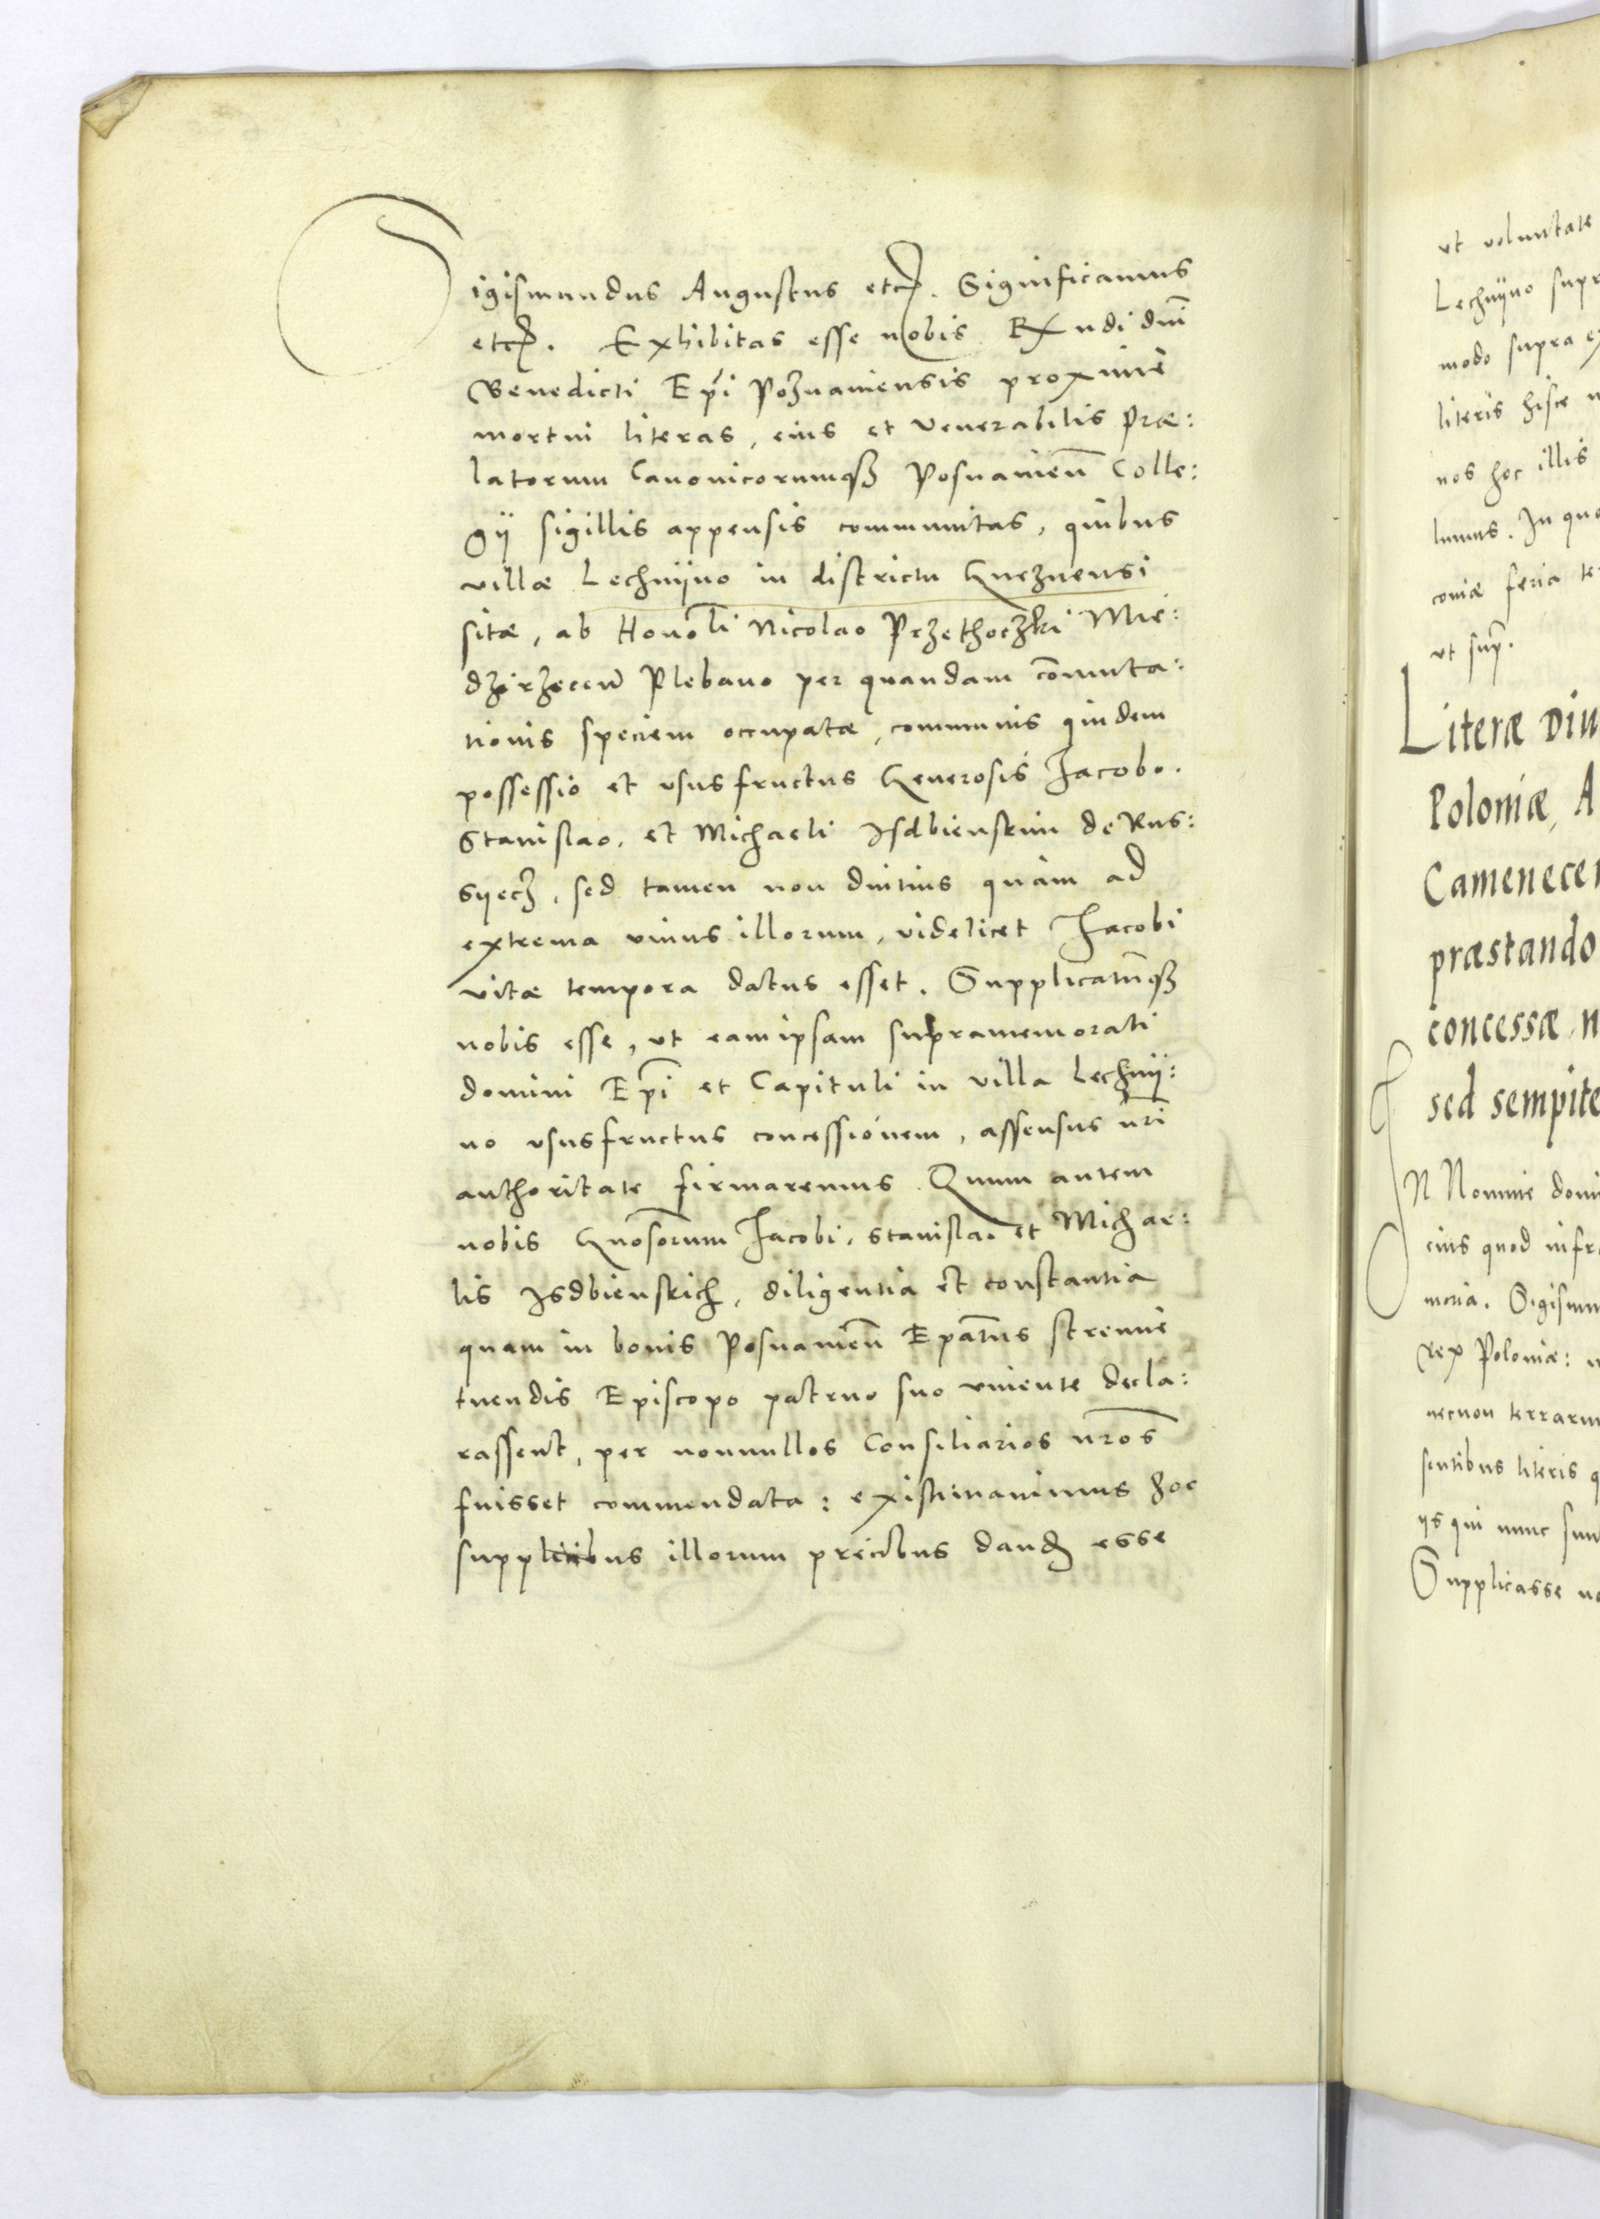 Sigismundus Augustus etc. Significamus
etc. Exhibitas esse nobis Rndi dni
Benedicti Epi Poznaniensis proxime
mortui literas, eius et venerabilis Præ:
latorum Canonicorumqz Posnanien Colle:
gij sigillis appensis communitas, quibus
villæ Lechnijno in districtu Gneznensi
sitæ, ab Honoli Nicolao Przethoczki Mie:
dzirzecen Plebano per quandam comuta:
tionis speciem occupatæ, communis quidem
possessio et usus fructus Generosis Jacobo.
Stanislao. et Michaeli Isdbienskim de Rus:
siecz. sed tamen non diutius quàm ad
extrema unius illorum, videlicet Jacobi
vitæ tempora datus esset. Supplicatumqz
nobis esse, ut eam ipsam supramemorati
domini Epi et Capituli in villa Lechnij:
no usus fructus concessionem, assensus nri
authoritate firmaremus. Quum autem
nobis Gnosorum Jacobi. Stanislai et Michae:
lis Isdbienskich, diligentia et constantia
quam in bonis Posnanien Epatus strenue
tuendis Episcopo patruo suo vivente decla:
rassent, per nonnullos Consiliarios nros
fuisset commendata: existimavimus hoc
supplicibus illorum precibus dandum esse
ut voluntate
Lechnijno supr
modo supra ex
literis hisce n
nos hoc illis
lumus. In quo
coniæ feria te
ut sup.
Literæ Diu
Poloniæ, A
Camenecen
præstando
concessæ, n
sed sempite
In Nomine domi
eius quod infra
moria. Sigismu
Rex Poloniæ: n
necnon terrarum
sentibus literis q
ijs qui nunc sun
Supplicasse no